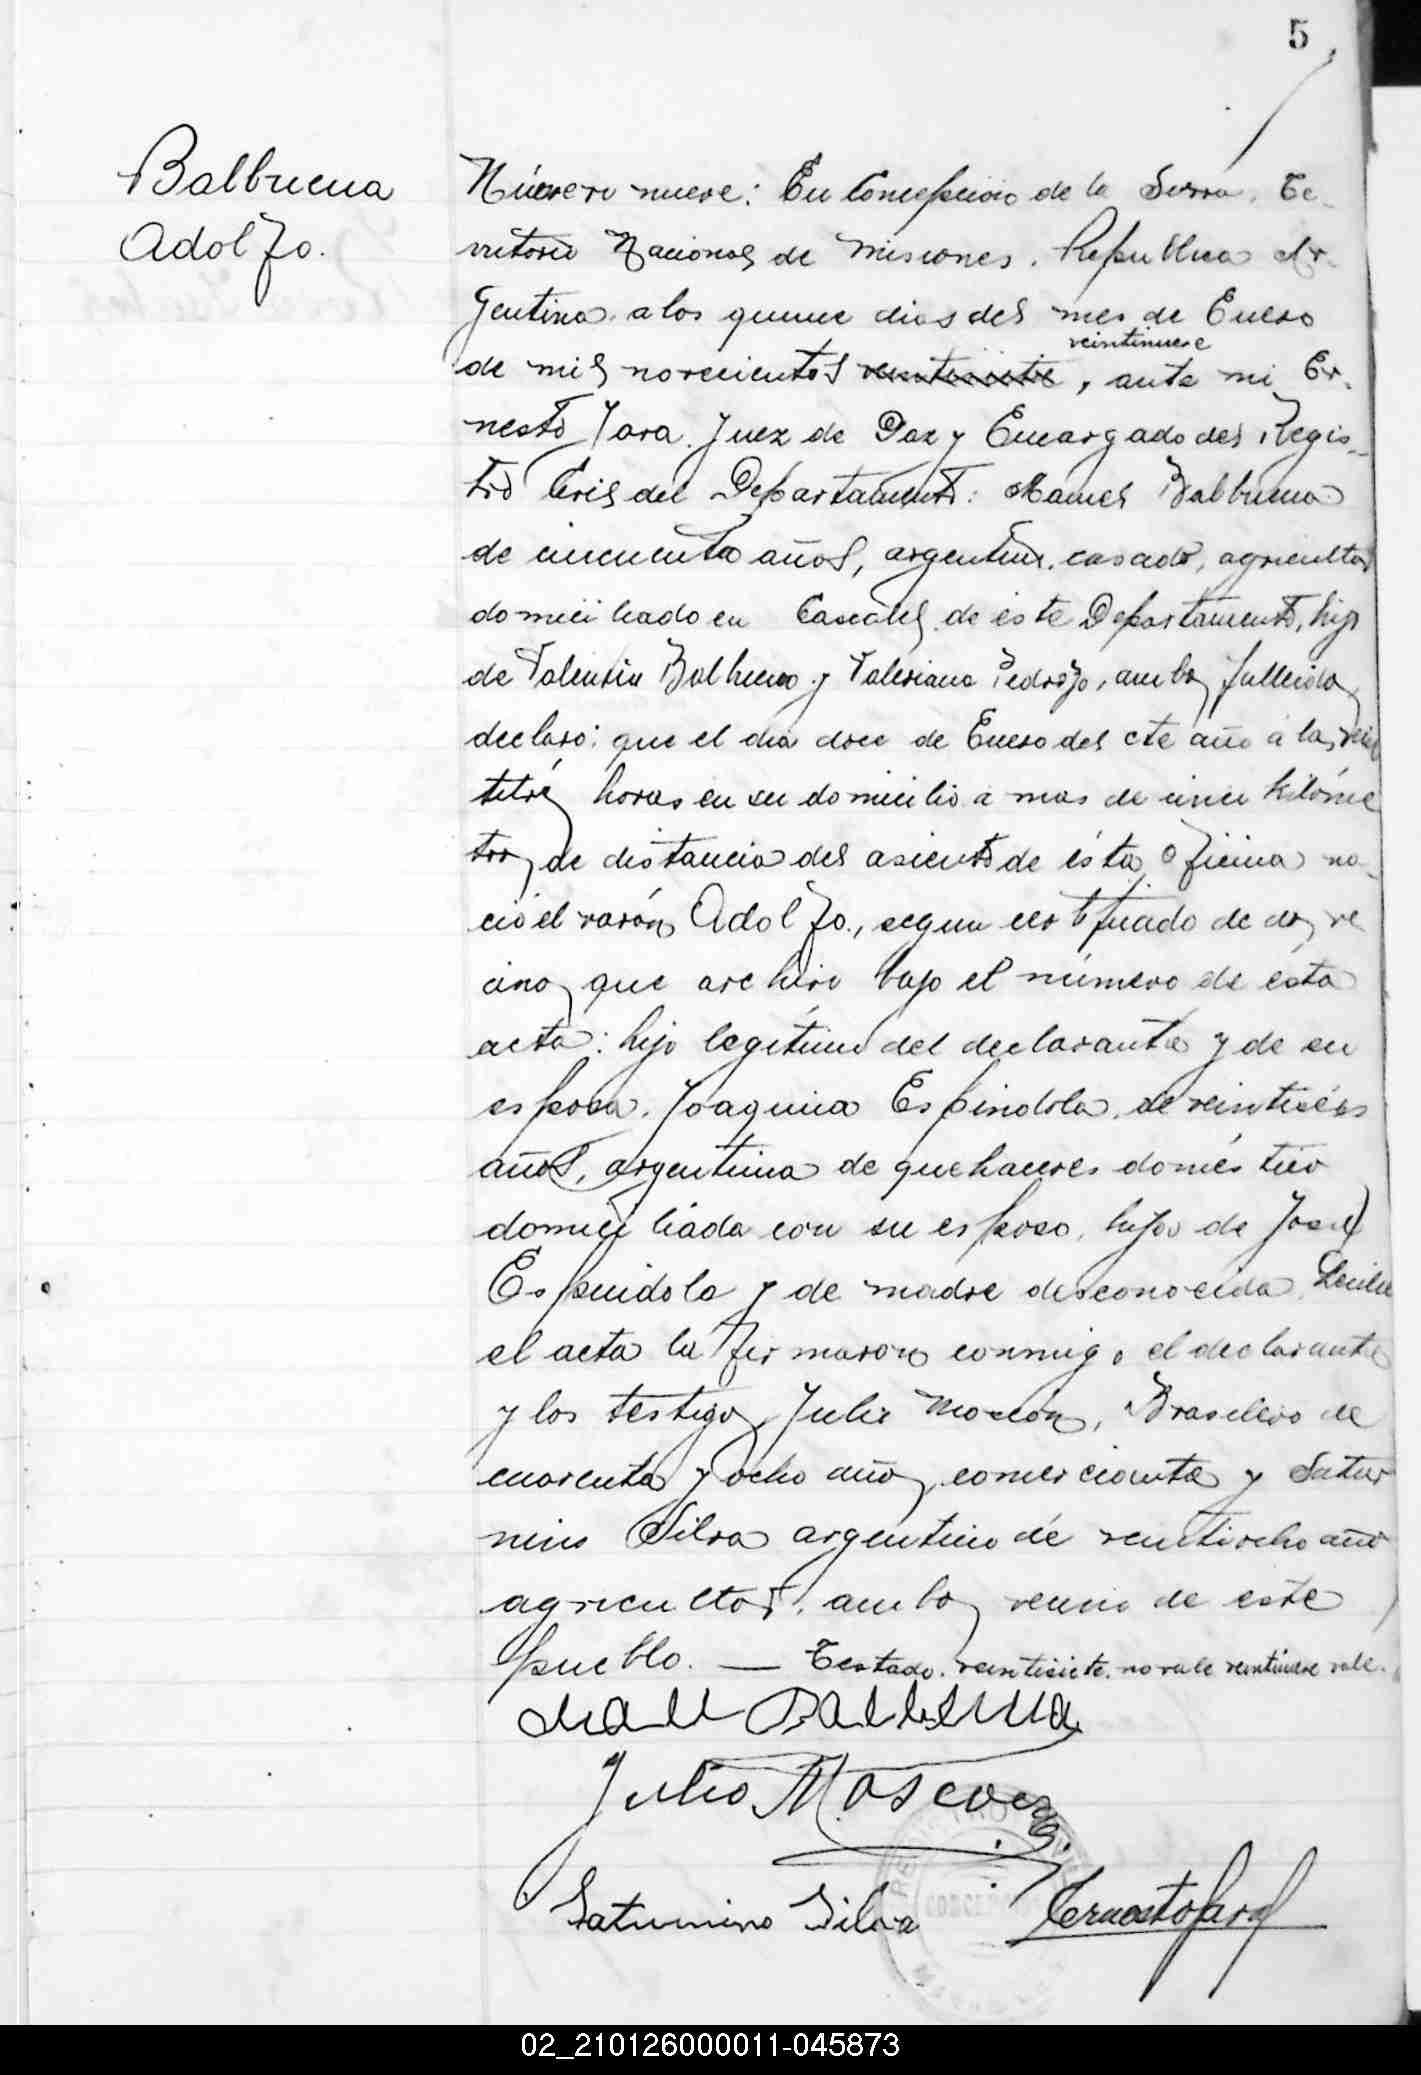 5
Balbuena
Adolfo.
Número nueve: En Concepcion de la Sierra, Te-
rritorio Nacional de Misiones. Republica Ar-
gentina. a los quince dias del mes de Enero
veintinueve
de mil novecientos veintisiete, ante mi Er-
nesto Jara. Juez de Paz y Encargado del Regis-
tro Civil del Departamento: Manuel Balbuena
de cincuenta años, argentino. casado, agricultor
domiciliado en de este Departamento, hijo
de Valentin Balbuena y Valeriana Pedrozo, ambos fallecidos
declaro: que el dia doce de Enero del cte año á las vein
titrés horas en su domicilio á mas de cinco kilóme
tros de distancia del asiento de ésta Oficina na-
ció el varón Adolfo., segun certificado de dos ve
cinos que archivo bajo el número de ésta
acta: hijo legítimo del declarante y de su
esposa. Joaquina Espindola, de veintiséis
años, argentina de quehaceres domésticos
domiciliada con su esposo, hija de José
Espindola y de madre desconocida. Leida
el acta la firmaron conmigo el declarante
y los testigos Julio Moscon, Brasilero de
cuarenta y ocho años, comerciante y Satur
nino Silva argentino de veintiocho años
agricultor, ambos vecinos de este
pueblo. — Testado. veintisiete. no vale veintinueve vale.
Manuel Balbuena
Julio Moscon
Saturnino Silva Ernesto Jara
02_210126000011-045873